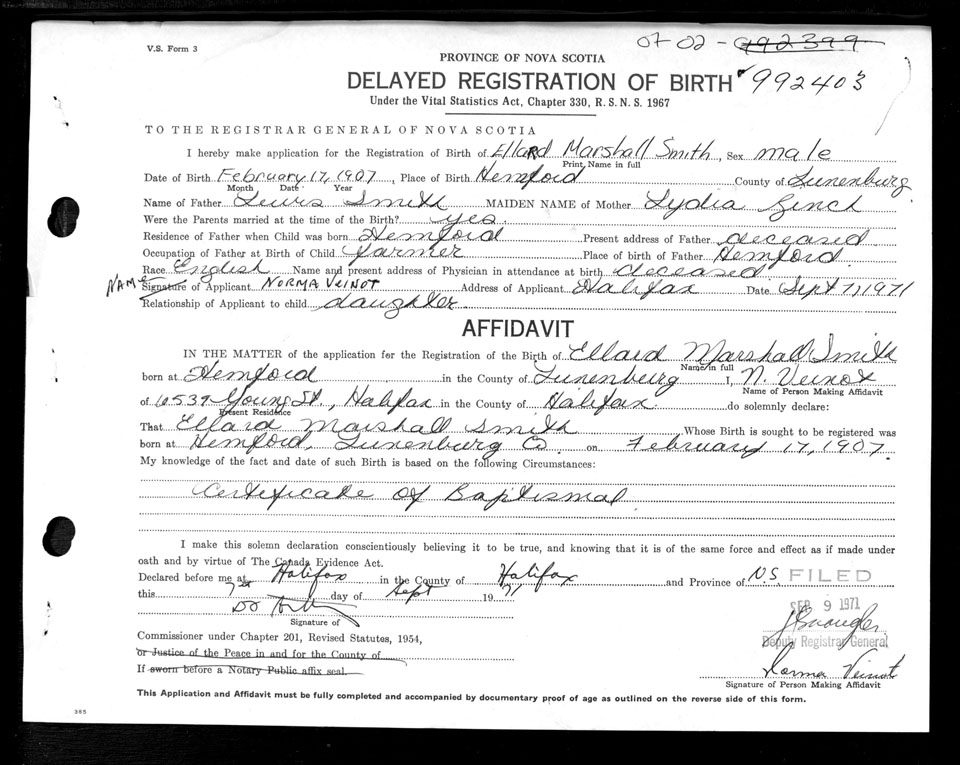 V.S. Form 3
07-02-992399
PROVINCE OF NOVA SCOTIA
DELAYED REGISTRATION OF BIRTH 992403
Under the Vital Statistics Act, Chapter 330, R.S.N.S. 1967
TO THE REGISTRAR GENERAL OF NOVA SCOTIA
I hereby make application for the Registration of Birth of Ellard Marshall Smith, Sex male
Print Name in full
Date of Birth February 17, 1907, Place of Birth Hemford County of Lunenburg
Month Date Year
Name of Father Lewis Smith MAIDEN NAME of Mother Lydia Zinck
Were the Parents married at the time of the Birth? yes
Residence of Father when Child was born Hemford Present address of Father deceased
Occupation of Father at Birth of Child farmer Place of birth of Father Hemford
Race English Name and present address of Physician in attendance at birth deceased
NAME Signature of Applicant NORMA VEINOT Address of Applicant Halifax Date Sept 7, 1971
Relationship of Applicant to child daughter
AFFIDAVIT
IN THE MATTER of the application for the Registration of the Birth of Ellard Marshall Smith
Name in full
born at Hemford in the County of Lunenburg I, N. Veinot
Name of Person Making Affidavit
of 6539 Young St., Halifax in the County of Halifax do solemnly declare:
Present Residence
That Ellard Marshall Smith, Whose Birth is sought to be registered was
born at Hemford, Lunenburg Co. on February 17, 1907.
My knowledge of the fact and date of such Birth is based on the following Circumstances:
Certificate of Baptismal
I make this solemn declaration conscientiously believing it to be true, and knowing that it is of the same force and effect as if made under
oath and by virtue of The Canada Evidence Act.
Declared before me at Halifax in the County of Halifax and Province of N.S. FILED
this 7th day of Sept 1971
SEP 9 1971
Signature of
Deputy Registrar General
Commissioner under Chapter 201, Revised Statutes, 1954,
or Justice of the Peace in and for the County of
If sworn before a Notary Public affix seal.
Norma Veinot
Signature of Person Making Affidavit
This Application and Affidavit must be fully completed and accompanied by documentary proof of age as outlined on the reverse side of this form.
385